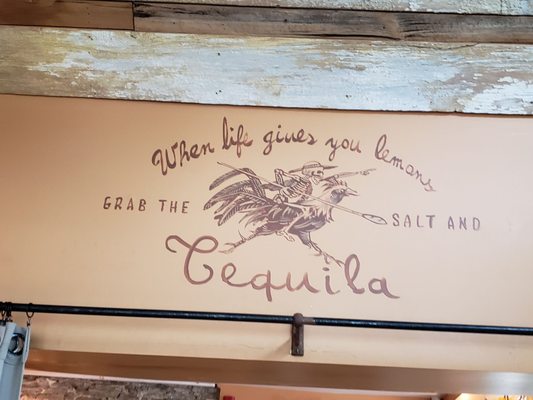 When life gives you lemons
GRAB THE SALT AND
Tequila